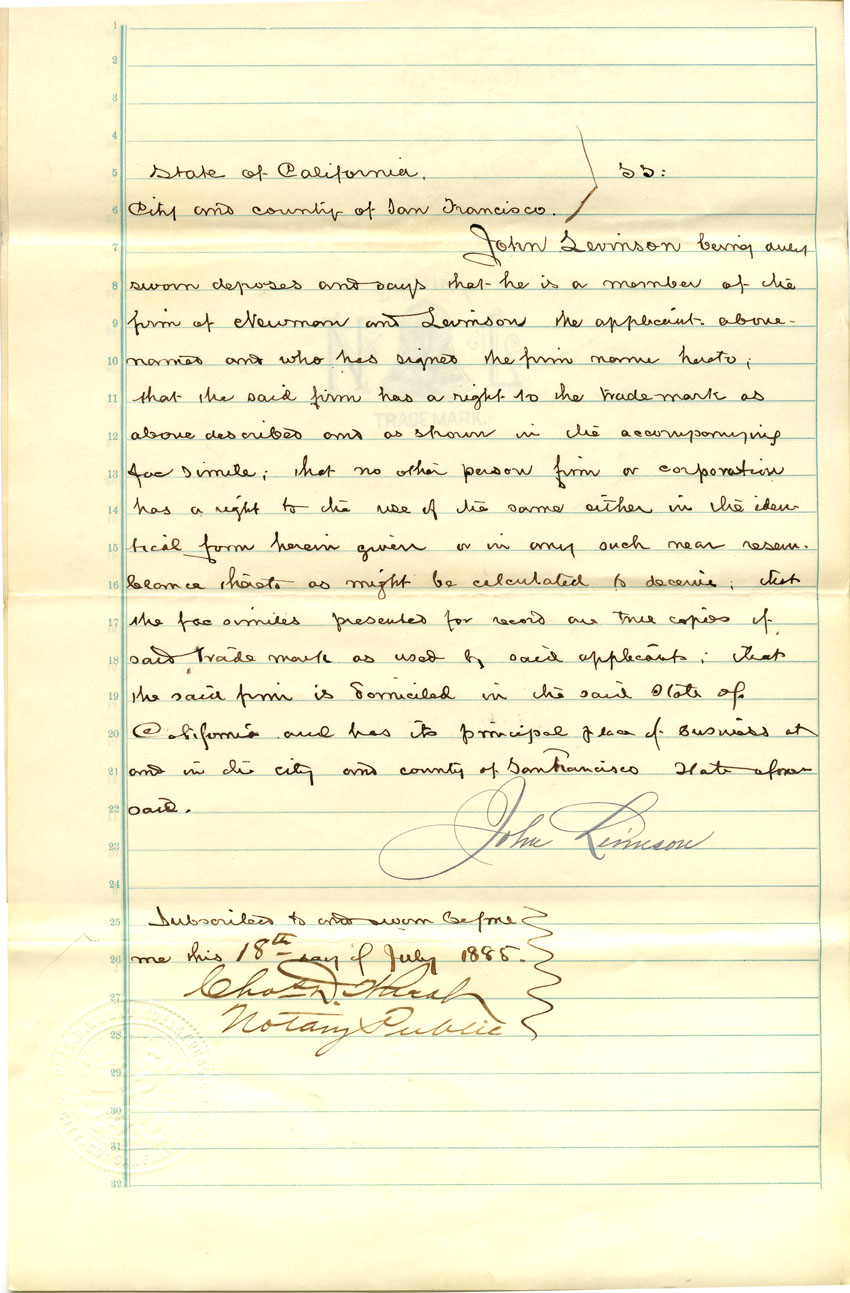 State of California. ) SS:
City and county of San Francisco.
John Levinson being duly
sworn deposes and says that he is a member of the
firm of Newman and Levinson the applicant above-
named and who has signed the firm name hereto;
that the said firm has a right to the trade mark as
above described and as shown in the accompanying
fac simile; that no other person firm or corporation
has a right to the use of the same either in the iden-
tical form herein given or in any such near resem-
blance thereto as might be calculated to deceive; that
the fac similes presented for record are true copies of
said trade mark as used by said applicant; that
the said firm is domiciled in the said State of
California and has its principal place of business at
and in the city and county of San Francisco State afore
said.
John Levinson
Subscribed to and sworn before
me this 18th day of July 1885.
Notary Public
TRADE MARK.
1
2
3
4
5
6
7
8
9
10
11
12
13
14
15
16
17
18
19
20
21
22
23
24
25
26
27
28
29
30
31
32